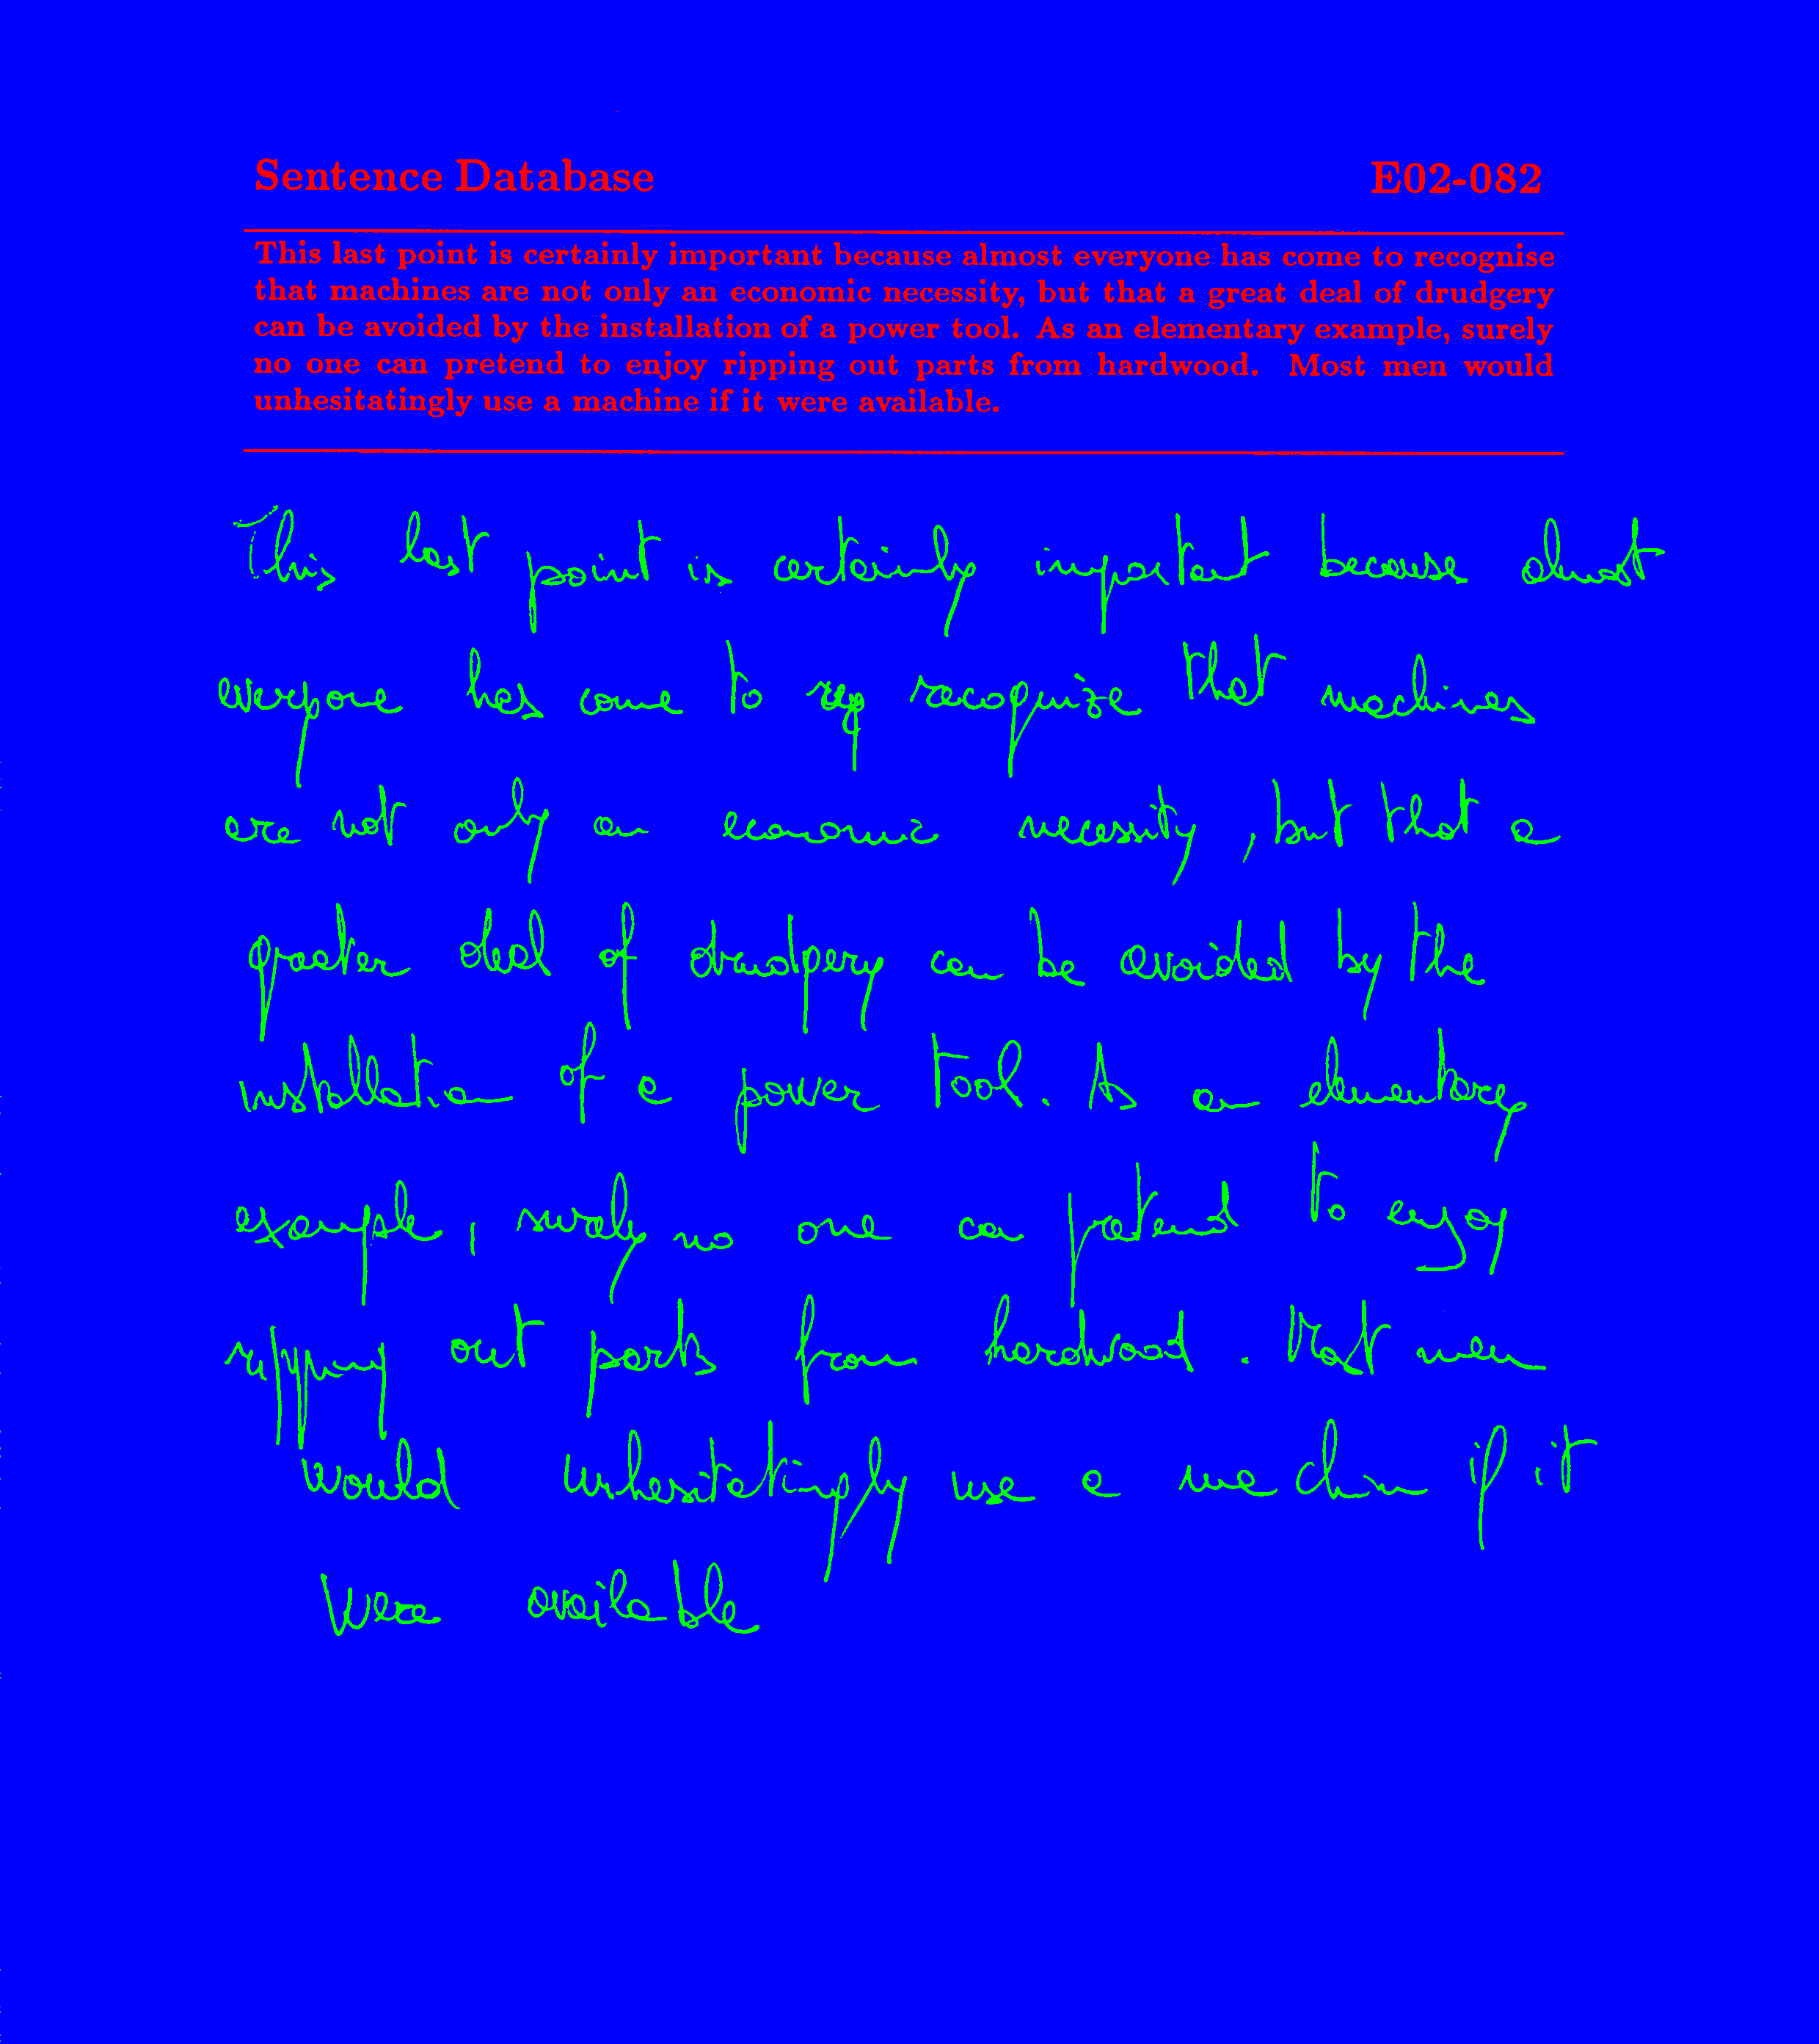 Sentence Database E02-082
This last point is certainly important because almost everyone has come to recognise
that machines are not only an economic necessity, but that a great deal of drudgery
can be avoided by the installation of a power tool. As an elementary example, surely
no one can pretend to enjoy ripping out parts from hardwood. Most men would
unhesitatingly use a machine if it were available.
This last point is certainly important because almost
everyone has come to reg recognize that machines
are not only an economic necessity, but that a
greater deal of drudgery can be avoided by the
installation of a power tool. As an elementary
example, surely no one can pretend to enjoy
ripping out parts from hardwood. Most men
would unhesitatingly use a machine if it
were available